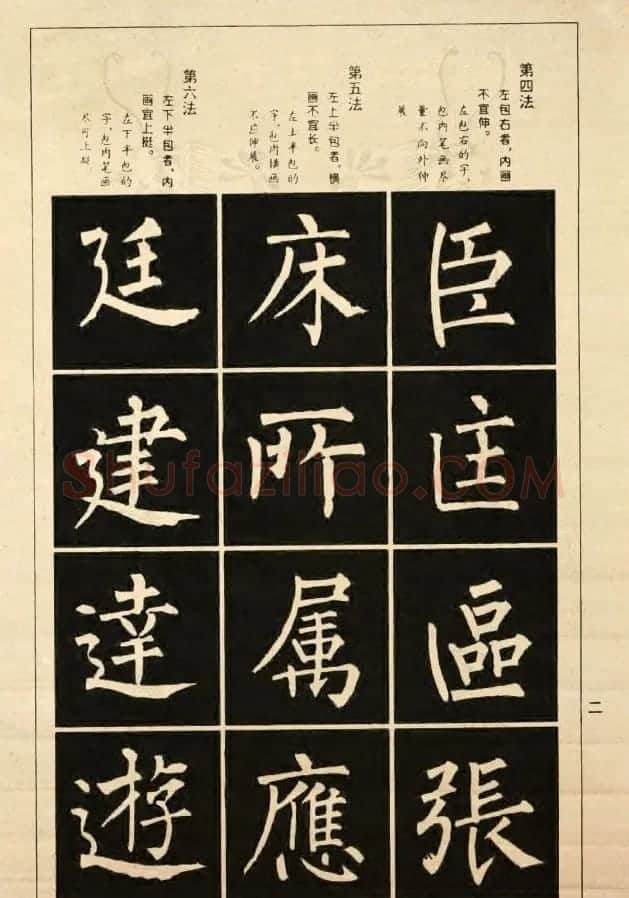 第四法
左包右者，内画
不宜伸。
左包右的字，
包内笔画尽
量不向外伸
展
臣
匡
區
張
第五法
左上半包者，横
画不宜长。
左上半包的
字，包内横画
不应伸展。
床
所
属
應
第六法
左下半包者，内
画宜上挺。
左下半包的
字，包内笔画
尽可上挺。
廷
建
達
遊
二
Shufaziliao.COM